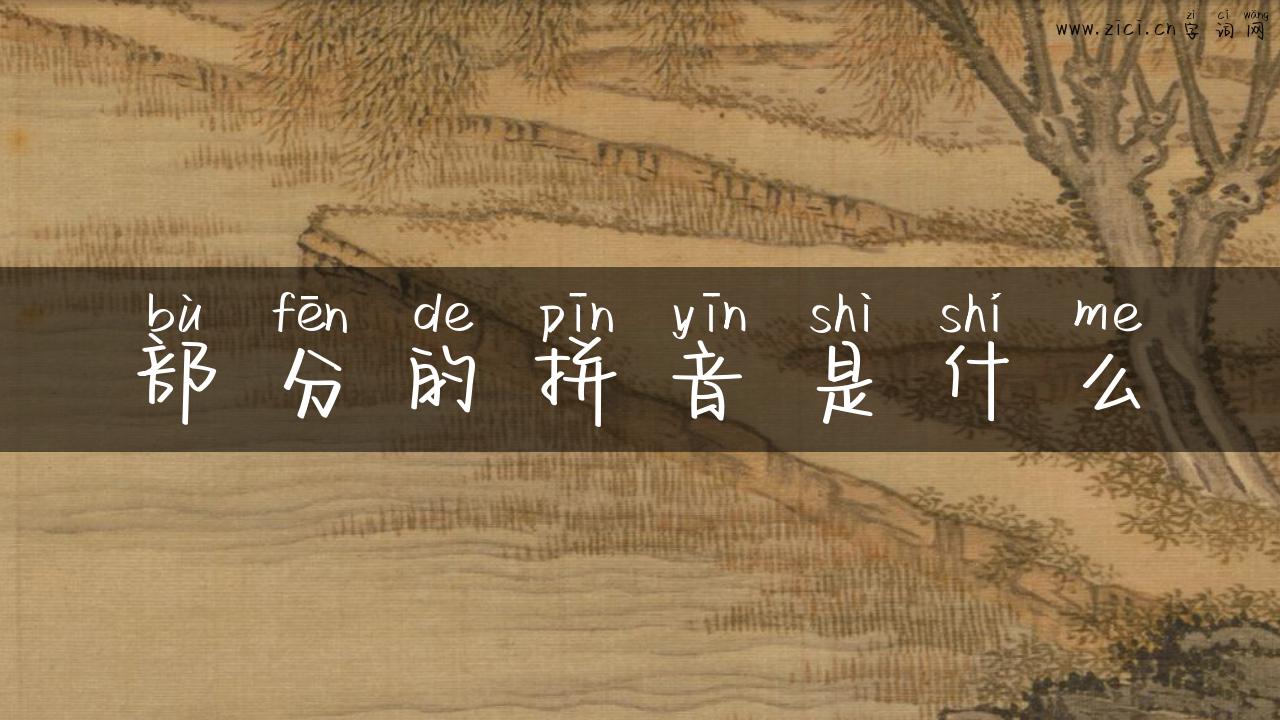 zì cí wǎng
www.zici.cn字词网
bù fēn de pīn yīn shì shí me
部分的拼音是什么